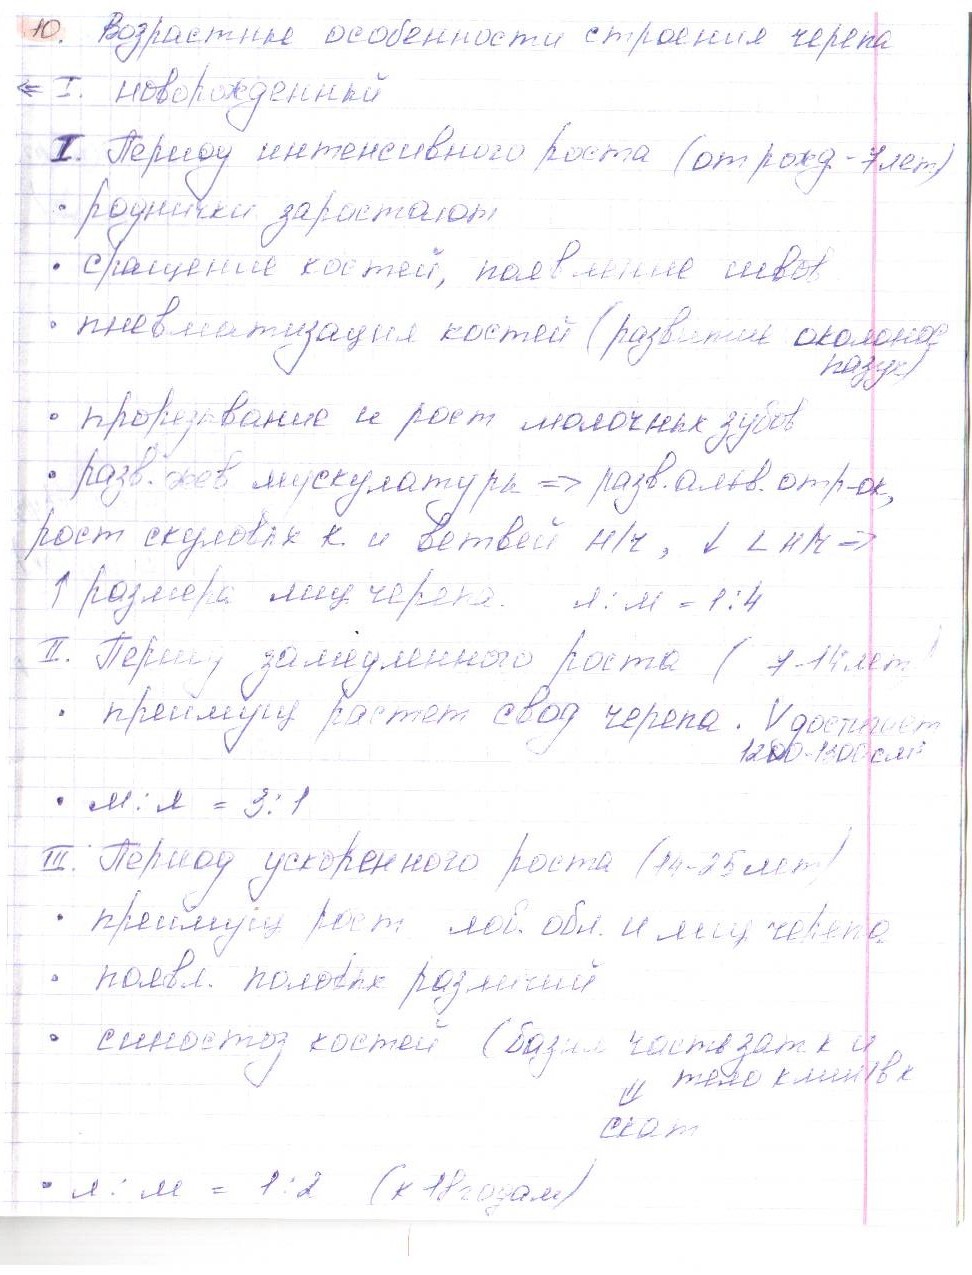 10. Возрастные особенности строения черепа
⇐ I. новорожденный
I. Период интенсивного роста (от рожд - 7 лет)
· роднички зарастают
· сращение костей, появление швов
· пневматизация костей (развитие околонос
пазух)
· прорезывание и рост молочных зубов
· разв. жев мускулатуры => разв. альв. отр-ок,
рост скуловых к. и ветвей н/ч, ↓ ∠ н/ч =>
↑ размера лиц. черепа. л : м = 1 : 4
II. Период замедленного роста ( 7-14 лет)
· преимущ растет свод черепа. V достигает
1200-1300 см³
· м : л = 3 : 1
III. Период ускоренного роста (14-25 лет)
· преимущ рост лоб. обл. и лиц черепа
· появл. половых различий
· синостоз костей (базил часть зат к и
тело клин в к
⇓
скат
· л : м = 1 : 2 (к 18 годам)